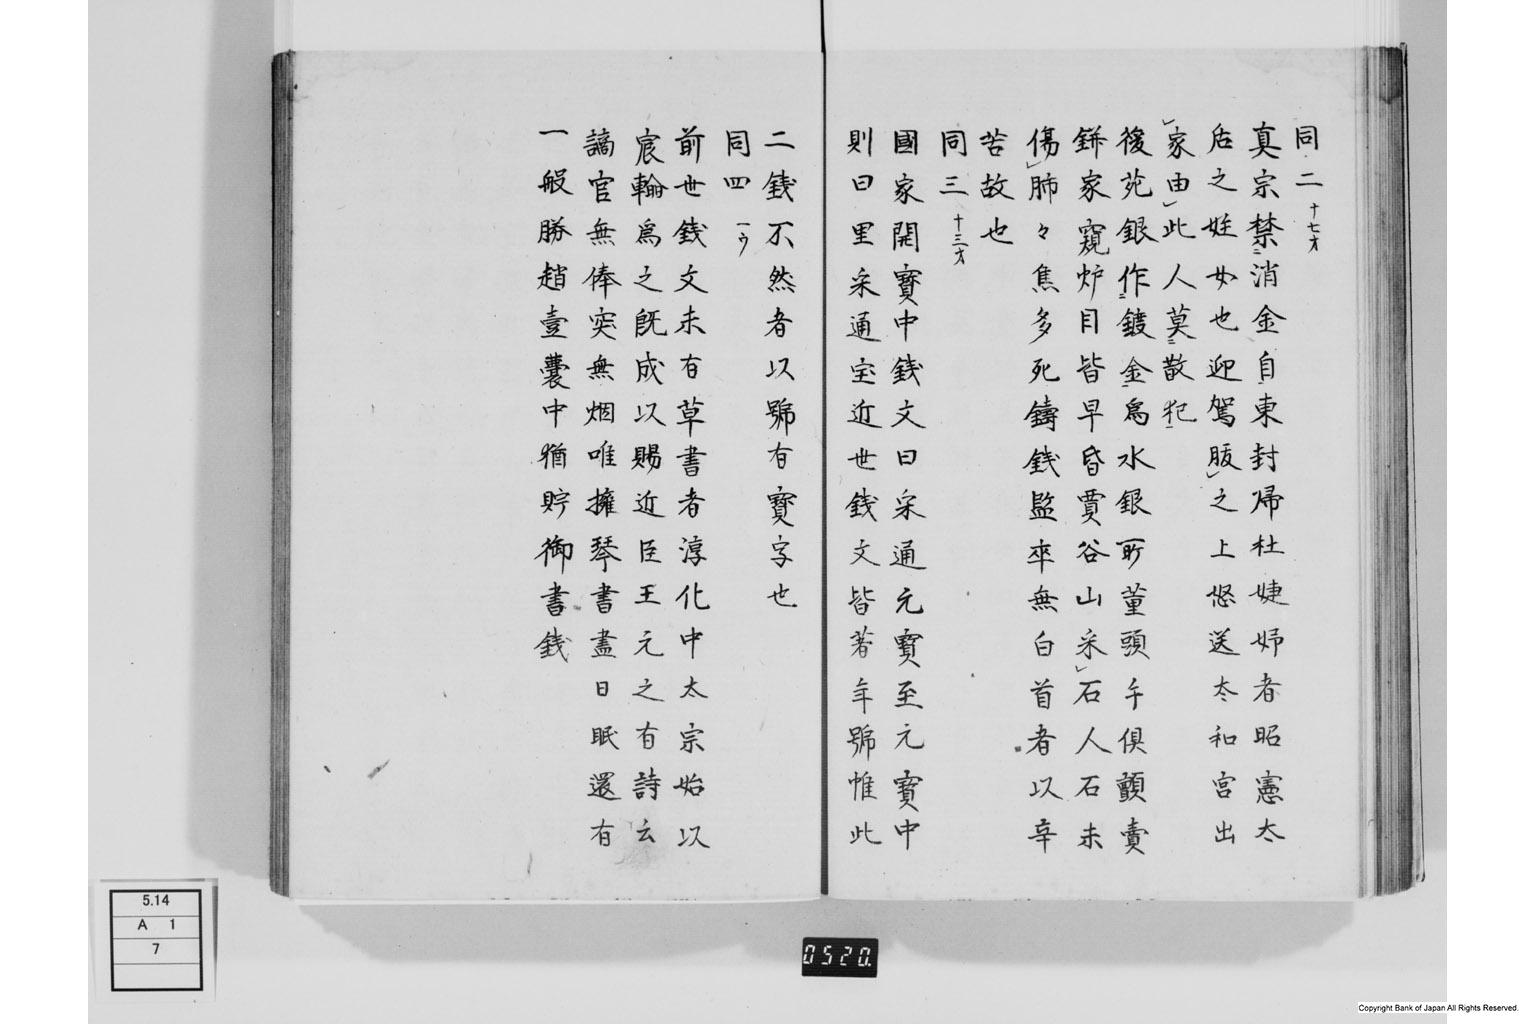 同二 十七オ
真宗禁消金自東封帰杜婕妤者昭憲太
后之姪女也迎駕服之上怒送太和宮出
家由此人莫敢犯
後苑銀作鍍金為水銀所薫頭手俱顫賣
餅家窺炉目皆早昏賈谷山采石人石末
傷肺々焦多死鋳銭監卒無白首者以辛
苦故也
同三 十三オ
國家開寶中銭文曰宋通元寶至元寶中
則曰里宋通宝近世銭文皆著年號惟此
二銭不然者以號有寶字也
同四 一ウ
前世銭文未有草書者淳化中太宗始以
宸翰為之既成以賜近臣王元之有詩云
謫官無俸突無烟唯擁琴書盡日眠還有
一般勝趙壹囊中猶貯御書銭
5.14
A 1
7
0520.
Copyright Bank of Japan All Rights Reserved.